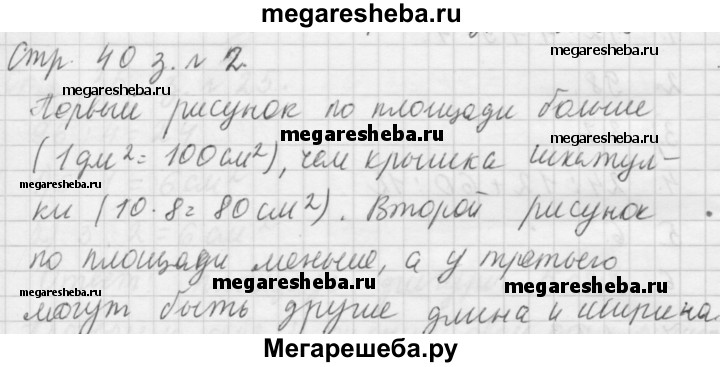 megaresheba.ru
Стр. 40 з. № 2.
megaresheba.ru
megaresheba.ru
Первый рисунок по площади больше
megaresheba.ru
megaresheba.ru
(1 дм² = 100 см²), чем крышка шкатул-
megaresheba.ru
ки (10 · 8 = 80 см²). Второй рисунок
по площади меньше, а у третьего
megaresheba.ru megaresheba.ru megaresheba.ru
могут быть другие длина и ширина.
Мегарешеба.ру